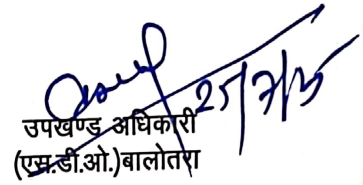 25/7/25
उपखण्ड अधिकारी
(एस.डी.ओ.)बालोतरा